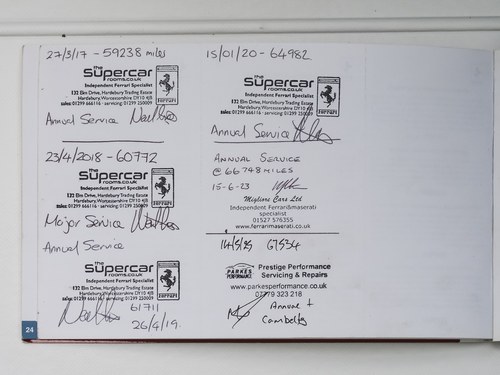 27/3/17 - 59238 miles
the
Supercar
rooms.co.uk
Independent Ferrari Specialist
132 Elm Drive, Hartlebury Trading Estate
Hartlebury, Worcestershire DY10 4JB
sales: 01299 666116 - servicing 01299 250009
Ferrari
Annual Service
23/4/2018 - 60772
the
Supercar
rooms.co.uk
Independent Ferrari Specialist
132 Elm Drive, Hartlebury Trading Estate
Hartlebury, Worcestershire DY10 4JB
sales: 01299 666116 - servicing 01299 250009
Ferrari
Major Service
Annual Service
the
Supercar
rooms.co.uk
Independent Ferrari Specialist
132 Elm Drive, Hartlebury Trading Estate
Hartlebury, Worcestershire DY10 4JB
sales: 01299 666116 - servicing 01299 250009
Ferrari
61711
26/4/19
24
15/01/20 - 64982
the
Supercar
rooms.co.uk
Independent Ferrari Specialist
132 Elm Drive, Hartlebury Trading Estate
Hartlebury, Worcestershire DY10 4JB
sales: 01299 666116 - servicing 01299 250009
Ferrari
Annual Service
Annual Service
@ 66748 miles
15-6-23
Migliore Cars Ltd
Independent Ferrari&maserati
specialist
01527 576355
www.ferrarimaserati.co.uk
67534
PARKES
PERFORMANCE
Prestige Performance
Servicing & Repairs
www.parkesperformance.co.uk
07779 323 218
Annual +
Cambelts